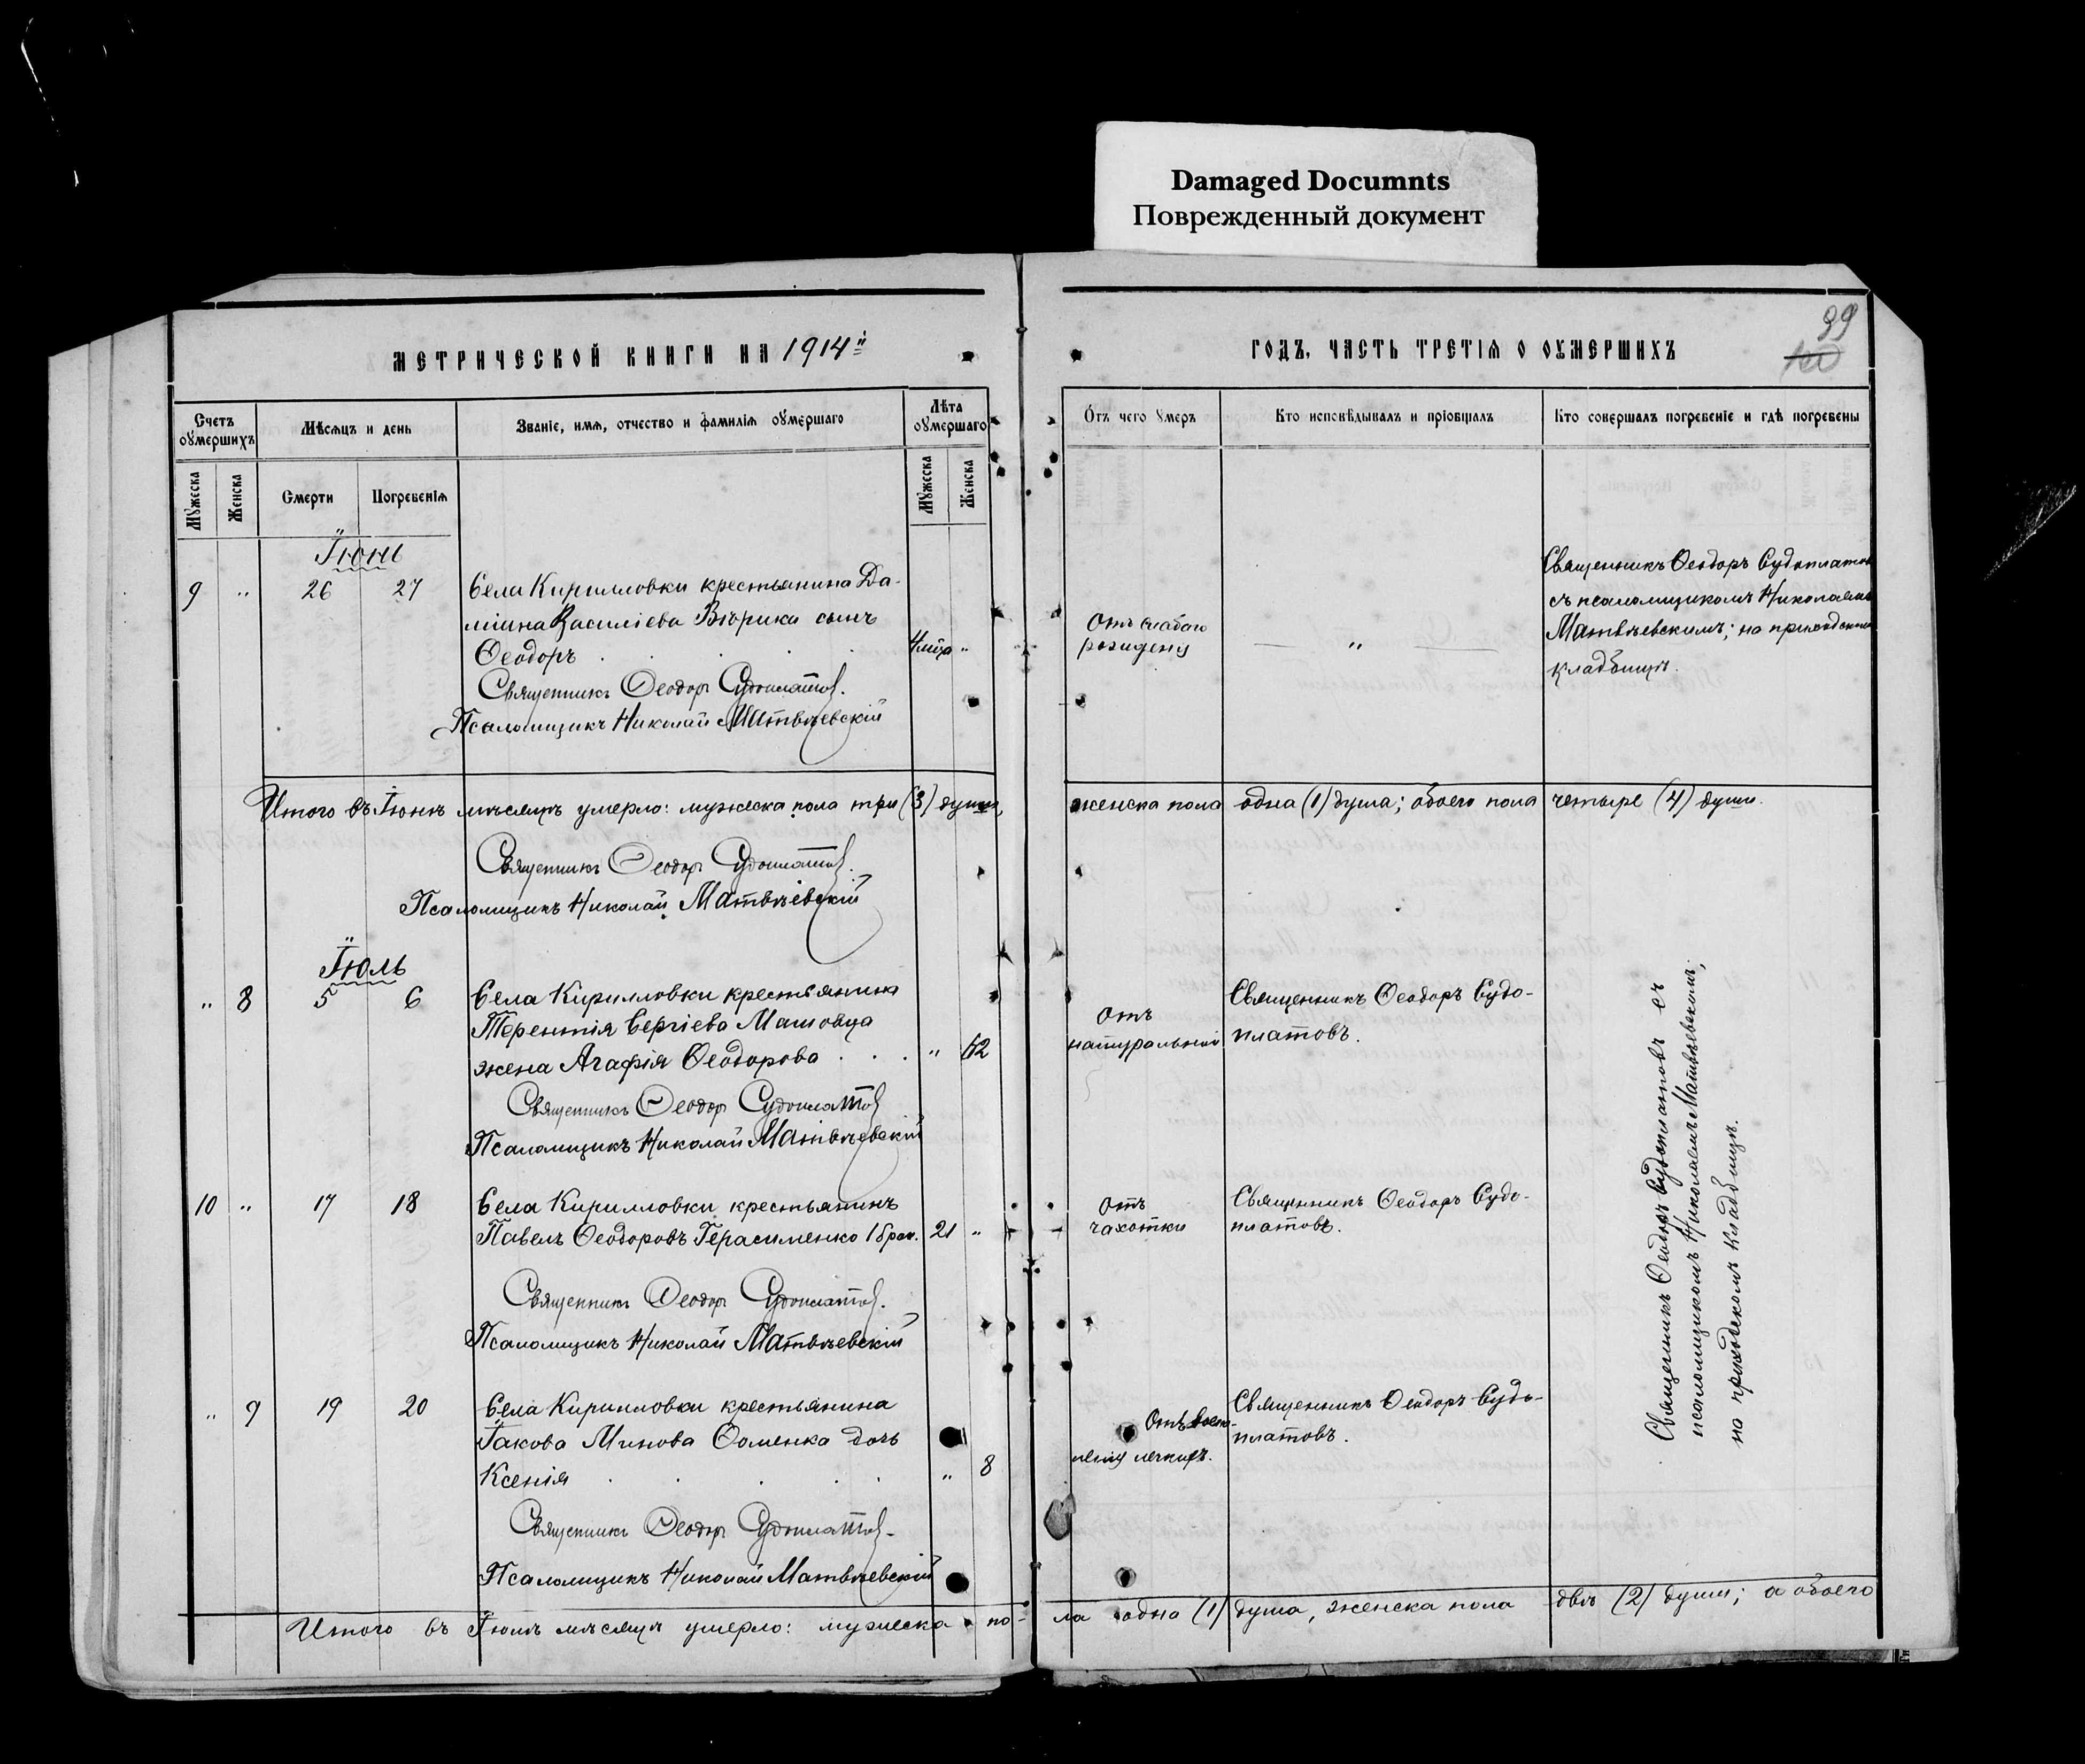 Damaged Documnts
Поврежденный документ
МЕТРИЧЕСКОЙ КНИГИ НА 1914й
ГОДЪ, ЧАСТЬ ТРЕТІЯ О ОУМЕРШИХЪ
99
100
Счетъ оумершихъ
Мѣсяцъ и день
Званіе, имя, отчество и фамилія оумершаго
Лѣта оумершаго
Мужеска
Женска
Смерти
Погребенія
Мужеска
Женска
Отъ чего умеръ
Кто исповѣдывалъ и пріобщалъ
Кто совершалъ погребеніе и гдѣ погребены
Іюнь
9 " 26 27
Села Кирилловки крестьянина Да-
міина Василіева сынъ
Ѳеодоръ . . . .
4 мѣс. "
Отъ слабаго
рожденія
"
Священникъ Ѳеодоръ Судоплатовъ
съ псаломщикомъ Николаемъ
Матвѣевскимъ; на приходскомъ
кладбищѣ.
Священникъ Ѳеодоръ Судоплатовъ.
Псаломщикъ Николай Матвѣевскій
Итого въ Іюнѣ мѣсяцѣ умерло: мужеска пола три (3) души,
женска пола одна (1) душа; обоего пола четыре (4) души.
Священникъ Ѳеодоръ Судоплатовъ.
Псаломщикъ Николай Матвѣевскій
Іюль
" 8 5 6
Села Кирилловки крестьянина
Терентія Сергіева
жена Агафія Ѳеодорова . . . "
Отъ
натуральной
Священникъ Ѳеодоръ Судо-
платовъ.
Священникъ Ѳеодоръ Судоплатовъ
Псаломщикъ Николай Матвѣевскій
10 " 17 18
Села Кирилловки крестьянинъ
Павелъ Ѳеодоровъ Герасименко 1 брак. 21 "
Отъ
чахотки
Священникъ Ѳеодоръ Судо-
платовъ.
Священникъ Ѳеодоръ Судоплатовъ.
Псаломщикъ Николай Матвѣевскій
" 9 19 20
Села Кирилловки крестьянина
Іакова Минова Ѳоменка дочь
Ксенія . . . . " 8
Отъ воспа-
ленія легкихъ.
Священникъ Ѳеодоръ Судо-
платовъ.
Священникъ Ѳеодоръ Судоплатовъ съ
псаломщикомъ Николаемъ Матвѣевскимъ;
на приходскомъ кладбищѣ.
Священникъ Ѳеодоръ Судоплатовъ.
Псаломщикъ Николай Матвѣевскій
Итого въ Іюлѣ мѣсяцѣ умерло: мужеска по-
ла одна (1) душа, женска пола двѣ (2) души; а обоего